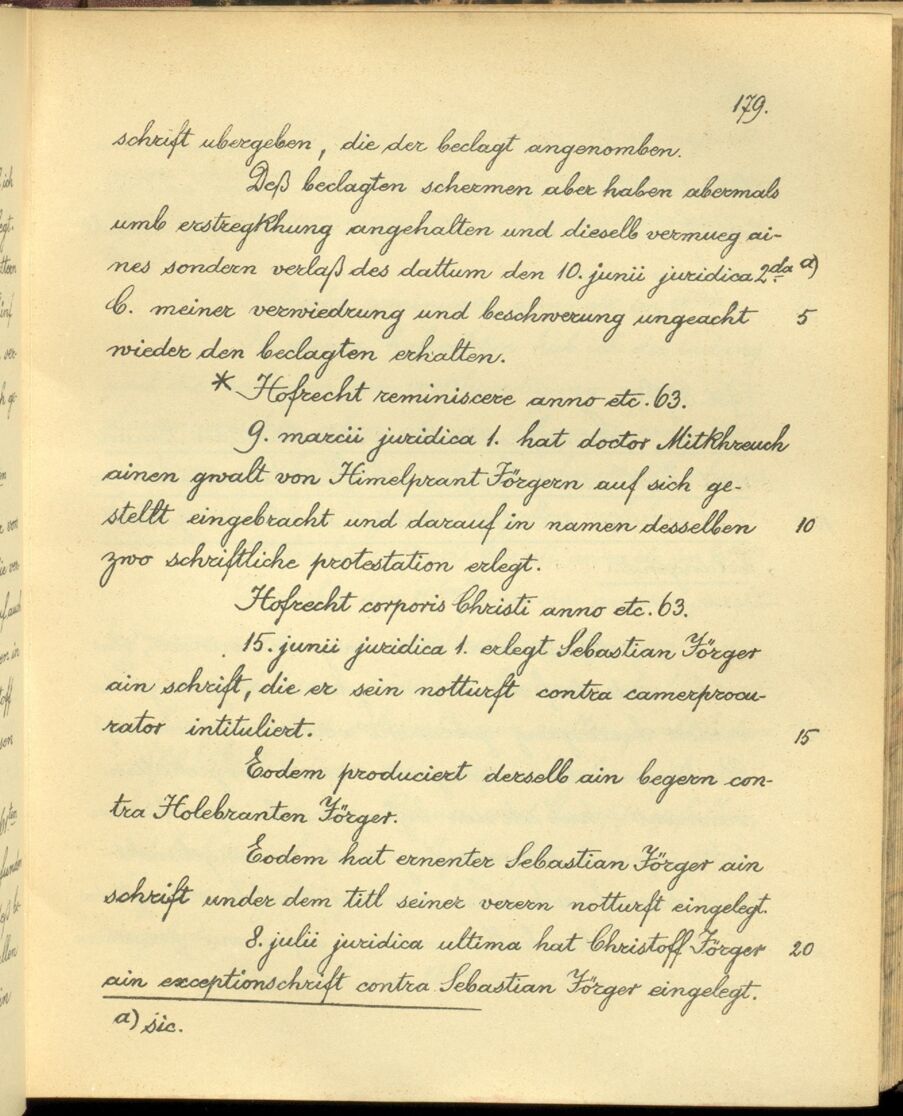 179.
schrift ubergeben, die der beclagt angenomben.
Deß beclagten schermen aber haben abermals
umb erstregkhung angehalten und dieselb vermueg ai-
nes sondern verlaß des dattum den 10. junii juridica 2da a)
C. meiner verwiedrung und beschwerung ungeacht 5
wieder den beclagten erhalten.
* Hofrecht reminiscere anno etc. 63.
9. marcii juridica 1. hat doctor Mitkhreuch
ainen gwalt von Himelprant Jörgern auf sich ge-
stellt eingebracht und darauf in namen desselben 10
zwo schriftliche protestation erlegt.
Hofrecht corporis Christi anno etc. 63.
15. junii juridica 1. erlegt Sebastian Jörger
ain schrift, die er sein notturft contra camerprocu-
rator intituliert. 15
Eodem produciert derselb ain begern con-
tra Holebranten Jörger.
Eodem hat ernenter Sebastian Jörger ain
schrift under dem titl seiner verern notturft eingelegt.
8. julii juridica ultima hat Christoff Jörger 20
ain exceptionschrift contra Sebastian Jörger eingelegt.
a) sic.